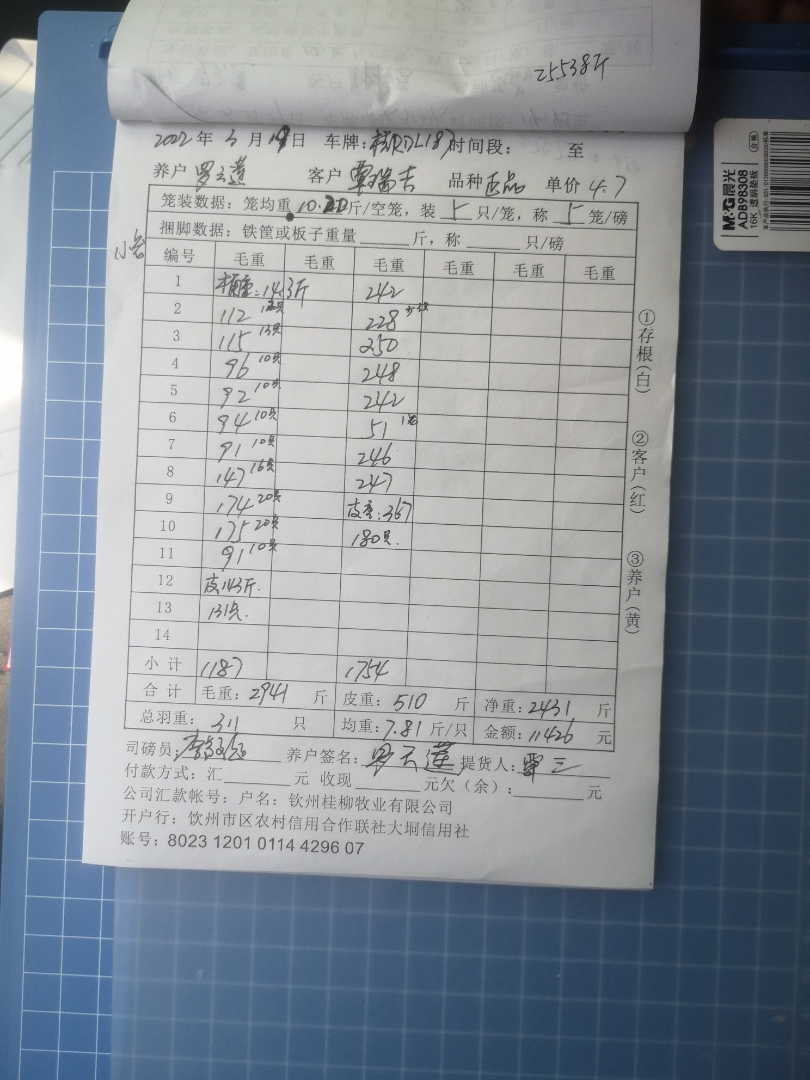 25538斤
2022年3月19日 车牌: 桂RDL187 时间段: 至
养户 罗云莲 客户 覃瑞吉 品种 正品 单价 4.7
笼装数据: 笼均重 斤/空笼, 装 5 只/笼, 称 5 笼/磅
捆脚数据: 铁筐或板子重量 斤, 称 只/磅
编号 毛重 毛重 毛重 毛重 毛重 毛重
1 桶重: 14.3斤 242
2 112 228
3 115 13只 250
4 96 10只 248
5 92 10只 242
6 94 10只 51 1笼
7 91 10只 246
8 147 16只 247
9 174 20只 皮重: 367
10 175 20只 180只.
11 91 10只
12 皮143斤.
13 131只.
14
小计 1187 1754
合计 毛重: 2941 斤 皮重: 510 斤 净重: 2431 斤
总羽重: 311 只 均重: 7.81 斤/只 金额: 11426 元
司磅员: 养户签名: 罗云莲 提货人: 覃三
付款方式: 汇 元 收现 元欠(余): 元
公司汇款帐号: 户名: 钦州桂柳牧业有限公司
开户行: 钦州市区农村信用合作联社大垌信用社
账号: 8023 1201 0114 4296 07
①存根(白)
②客户(红)
③养户(黄)
M&G晨光
ADB98308
16K 透明垫板
合格